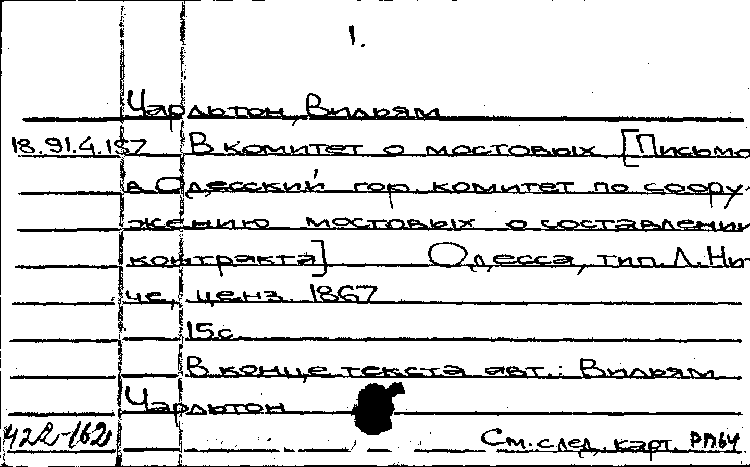 1.
Чарльтон, Вильям
18.91.4.157 В комитет о мостовых [Письмо
в Одесский гор. комитет по соору-
жению мостовых о составлении
контракта] Одесса, тип. Л. Нит-
че, ценз. 1867
15с.
В конце текста авт.: Вильям
Чарльтон
422-162
См. след. карт. РП64